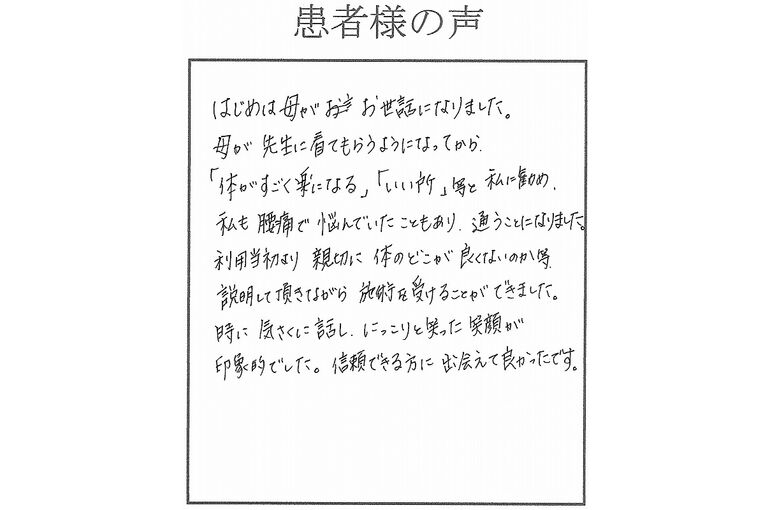 患者様の声
はじめは母がお お世話になりました。
母が 先生に看てもらうようになってから、
「体がすごく楽になる」「いい所」等と 私に勧め、
私も 腰痛で 悩んでいたこともあり、通うことになりました。
利用当初より 親切に 体のどこが 良くないのか等
説明して頂きながら 施術を受けることができました。
時に 気さくに話し、にっこりと笑った 笑顔が
印象的でした。信頼できる方に 出会えて良かったです。